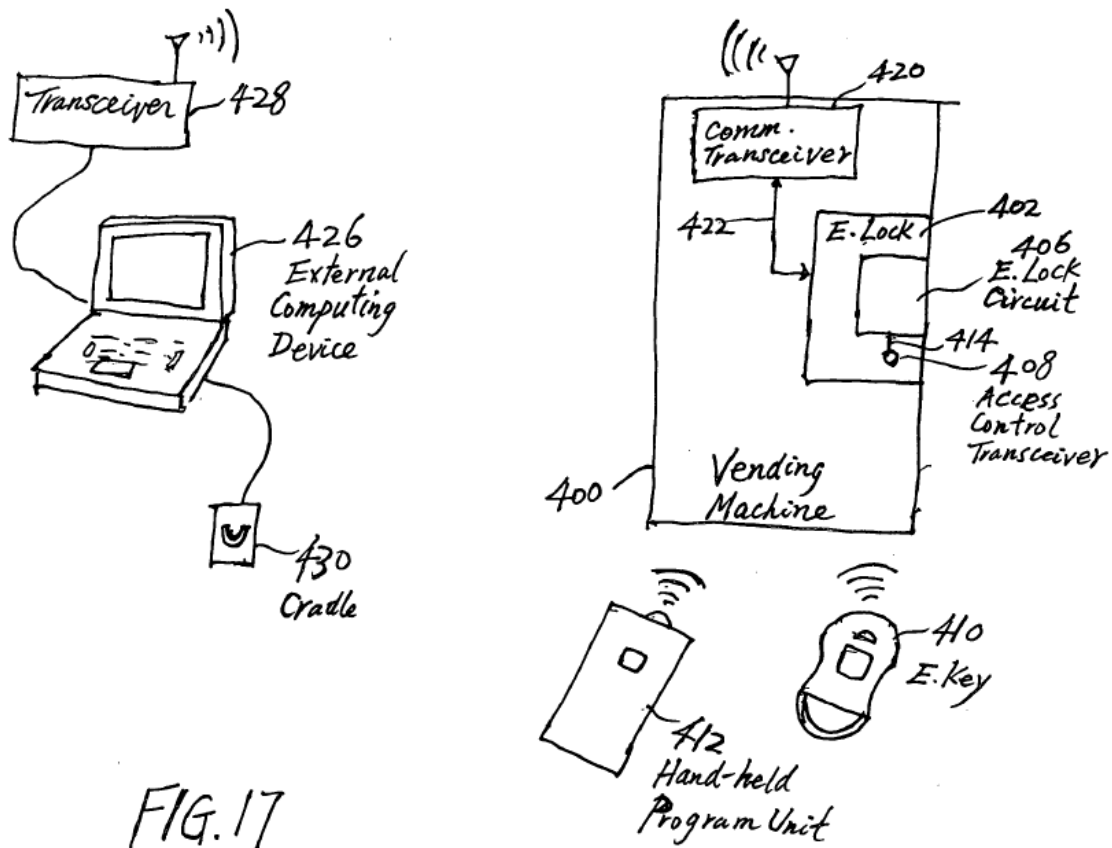 Transceiver
428
426
External
Computing
Device
430
Cradle
420
Comm.
Transceiver
422
402
E.Lock
406
E.Lock
Circuit
414
408
Access
Control
Transceiver
400
Vending
Machine
410
E.Key
412
Hand-held
Program Unit
FIG.17